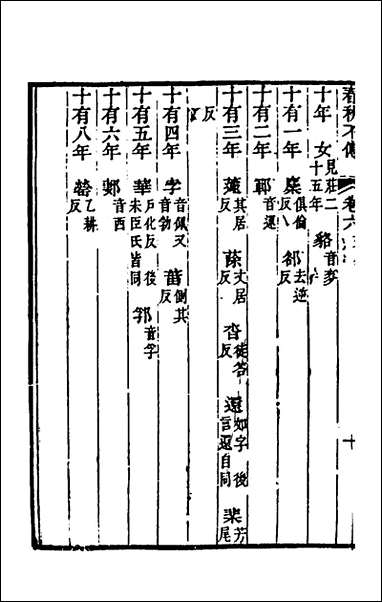 春秋本傳 卷六 十
十年 女見莊二十五年 貉音麥
十有一年 麇俱倫反 郤去逆反
十有二年 鄆音運
十有三年 蘧其居反 蒢丈居反 沓徒答反 還如字後言還自同 棐芳尾
反
十有四年 孛音佩又音勃 菑側其反
十有五年 華戶化反後宋臣氏皆同 郛音孚
十有六年 郪音西
十有八年 罃乙耕反